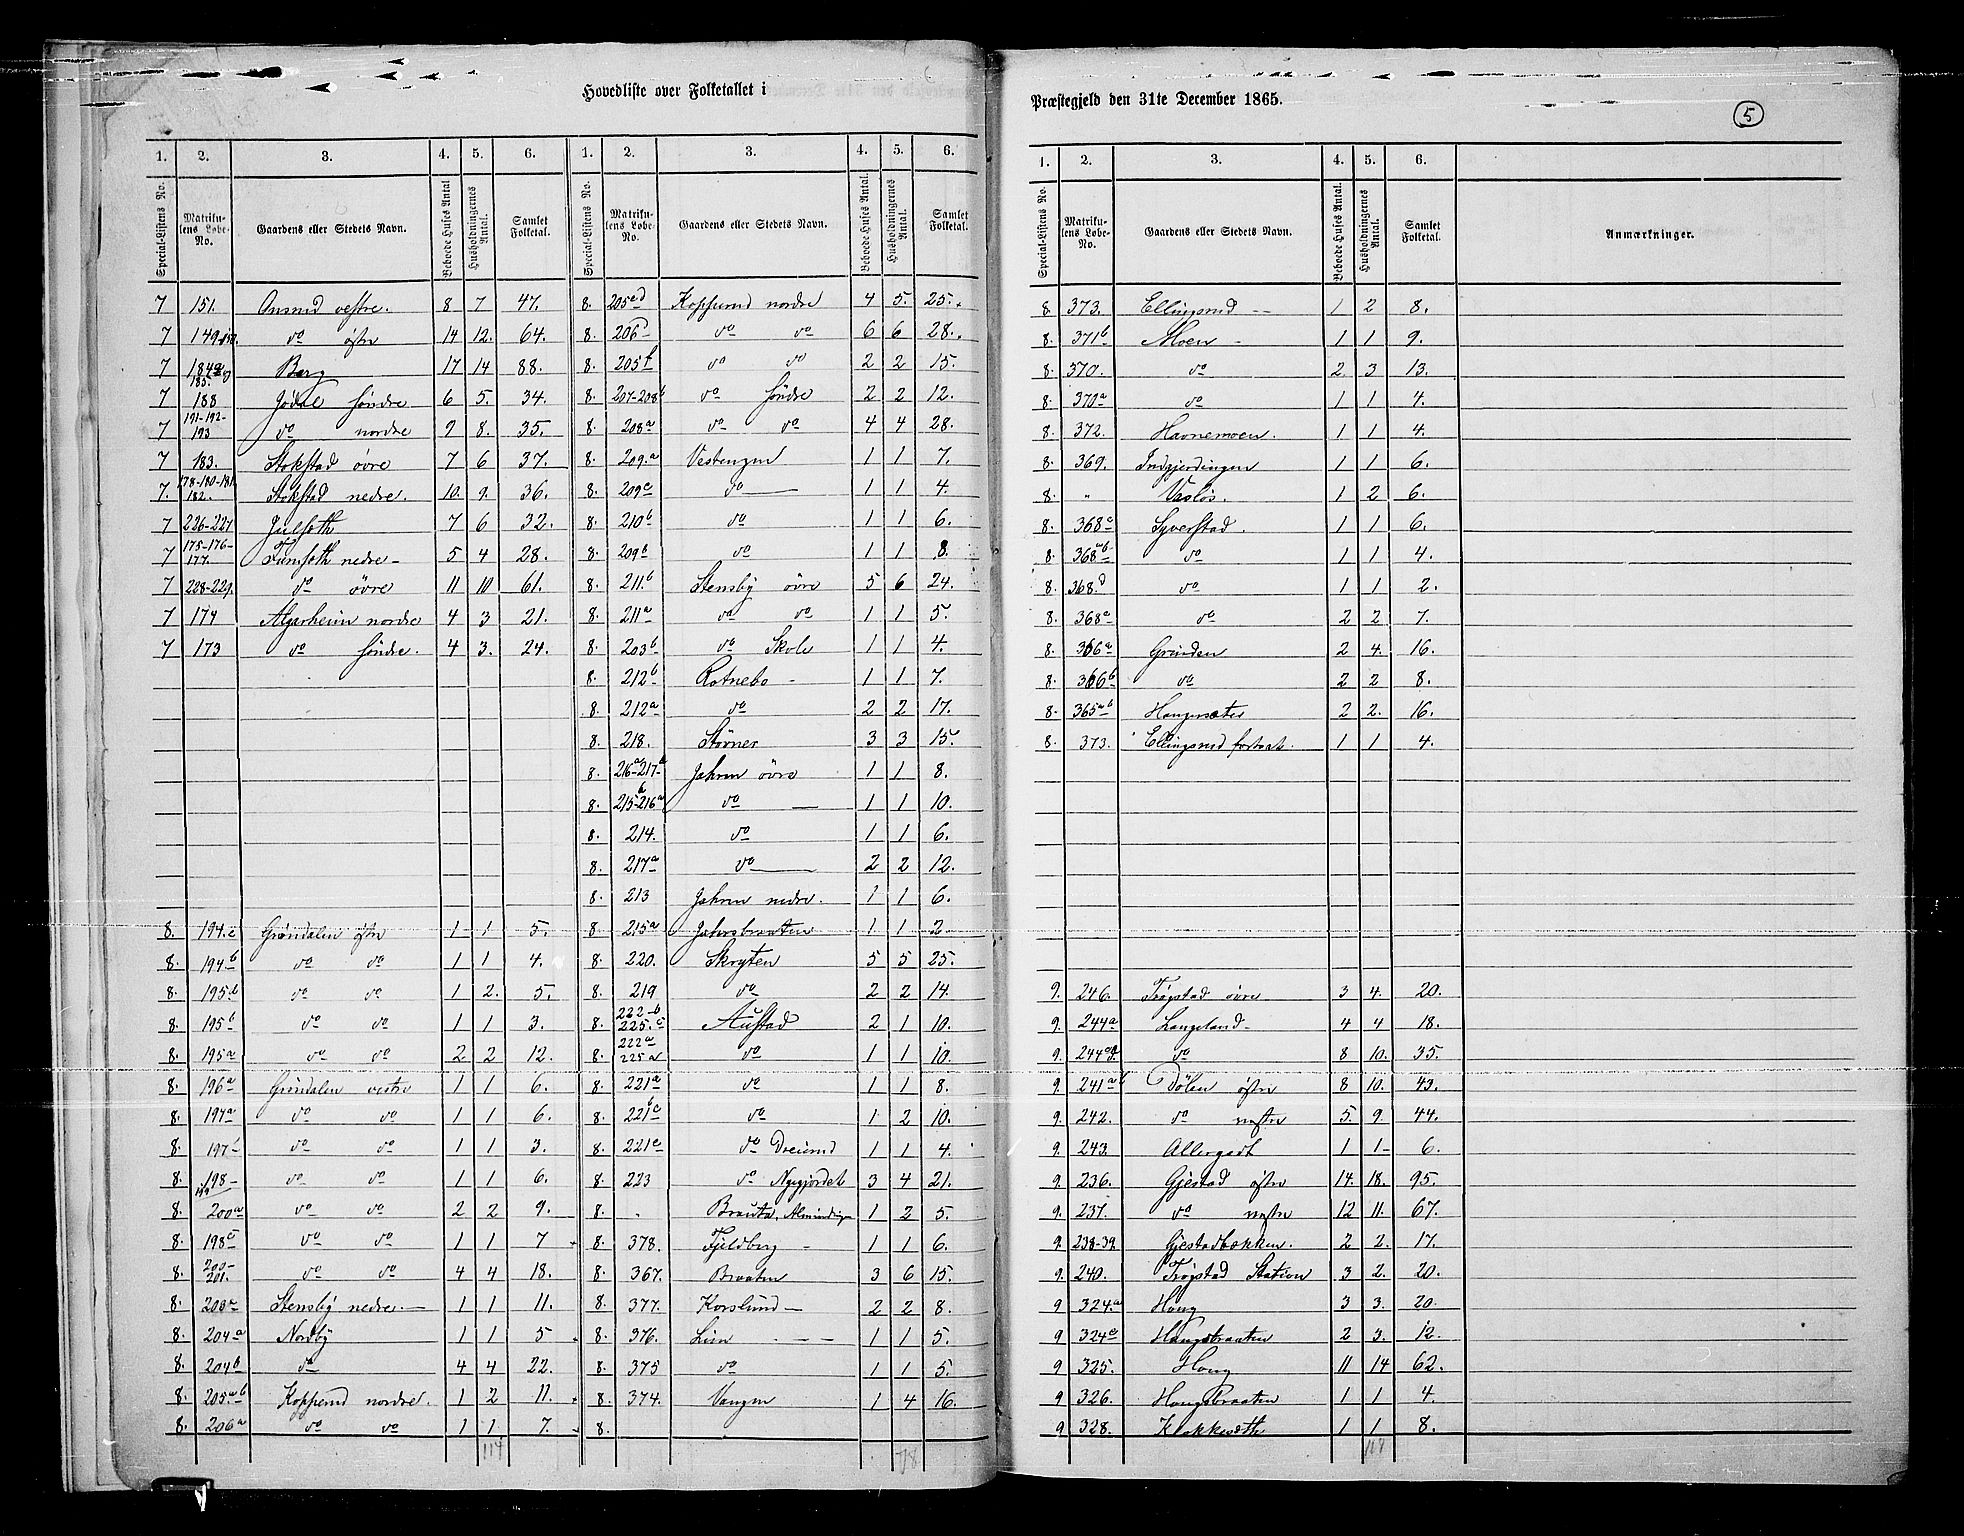 Hovedliste over Folketallet i
1. 2. 3. 4. 5. 6. 1. 2. 3. 4. 5. 6.
Special-Listens No. Matrikulens Løbe-No. Gaardens eller Stedets Navn. Beboede Huses Antal. Husholdningernes Antal. Samlet Folketal. Special-Listens No. Matrikulens Løbe-No. Gaardens eller Stedets Navn. Beboede Huses Antal. Husholdningernes Antal. Samlet Folketal.
7 151. vestre. 8 7 47.
7 149 do østre 14 12. 64.
7 184 185. Berg 17 14 88.
7 188 Jødal søndre 6 5. 34.
7 191-192-193 do nordre 9 8. 35.
7 183. Stokstad øvre 7 6 37.
7. 178-180-181 182. Stokstad nedre. 10. 9. 36.
7 226-227 Julseth 7 6 32.
7 175-176-177. nedre 5 4 28.
7 228-229. do øvre 11 10 61.
7 174 Algarheim nordre 4 3 21.
7 173 do søndre. 4 3. 24.
8. 194.c Grøndalen østre 1 1 5.
8. 194b do do 1 1 4.
8. 195.b do do 1 2. 5.
8. 195b do do 1 1 3.
8. 195a do do 2 2 12.
8. 196a Grøndalen vestre 1 1 6.
8. 197a do do 1 1 6.
8. 197b do do 1 1 3.
8. 198- 199 do do 1 1 6.
8. 200a do do 2 2 9.
8. 198c do do 1 1 7
8. 200-201. do do 4 4 18.
8. 203a Stensby nedre. 1 1 11.
8. 204a Nordby 1 1 5
8. 204b do 4 4 22.
8. 205.ab Kopperud nordre. 1 2 11.
8. 206a do do 1 1. 7.
114
8. 205ad Kopperud nordre 4 5. 25.
8. 206b do do 6 6 28.
8. 205b do do 2 2 15.
8. 207-208b do søndre 2 2 12.
8. 208a do do 4 4 28.
8. 209.a Vestengen 1 1 7.
8. 209c do 1 1 4.
8. 210b do 1 1 6.
8. 209b do 1 1 8.
8. 211b Stensby øvre 5 6 24.
8. 211a do do 1 1 5.
8. 203b do Skole 1 1 4.
8. 212b Rotnebo - 1 1 7.
8. 212a do 2 2 17.
8. 218. Støvner 3 3 15.
8. 216a 217b Jahren øvre 1 1 8.
8. 215b-216a do 1 1 10.
8. 214. do 1 1 6.
8. 217a do 2 2 12.
8. 213 Jahren nedre. 1 1 6.
8. 215a Jahrsbraaten 1 1 2
8. 220. Skryten 5 5 25.
8. 219 do 2 2 14.
8. 222b 225.c Austad 2 1 10.
8. 222a 225a do 1 1 10.
8. 221a do 1 1 8.
8. 221b do 1 2 10.
8. 221c do Dreierud 1 1 4.
8. 223 do Nygjordet 3 4 21.
8. Almindingen 1 2 5.
8. 378. Fjeldberg - 1 1 6.
8. 367. Braaten 3 6 15.
8. 377. Korslund 2 2 8.
8. 376. Lien 1 1 5.
8. 375 do 1 1 5.
8. 374. Vangen 1 4 16.
8.
Præstegjeld den 31te December 1865.
5
1. 2. 3. 4. 5. 6.
Special-Listens No. Matrikulens Løbe-No. Gaardens eller Stedets Navn. Beboede Huses Antal. Husholdningernes Antal. Samlet Folketal. Anmærkninger.
8. 373. Ellingsrud 1 2 8.
8. 371b Moen 1 1 9.
8. 370. do 2 3 13.
8. 370a do 1 1 4.
8. 372. Havnemoen. 1 1 4.
8. 369. Indgjerdingen 1 1 6.
8. " 1 2 6.
8. 368c Syverstad. 1 1 6.
8. 368b do 1 1 4.
8. 368.d do 1 1 2.
8. 368a do 2 2 7.
8. 366a Grinden 2 4. 16.
8. 366b do 2 2 8.
8. 365ab Haugersæter 2 2. 16.
8. 373. Ellingsrud fortsat. 1 1 4.
9. 246. Trøgstad øvre 3 4. 20.
9. 244a Langeland 4 4 18.
9. 244 do 8 10. 35.
9. 241ab Dølen østre 8 10. 43.
9. 242. do vestre 5. 9. 44.
9. 243. Allergodt 1 1 6.
9. 236. Gjestad østre 14. 18. 95.
9. 237. do vestre 12 11. 67.
9. 238-39. Gjestadbakken. 2 2. 17.
9. 240. Trøgstad Station 3 2. 20.
9 324.a Houg 3 3. 20.
9 324c Hougsbraaten 2 3. 12.
9 325. Houg 11 14 62.
9 326. Hougsbraaten 1 1 4.
9 328. Klokkesæth 1 1 8.